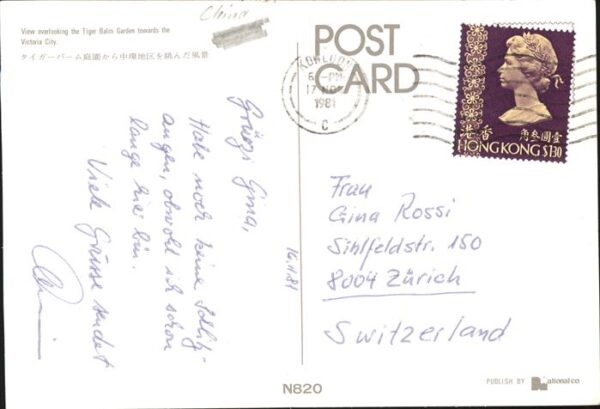 China
View overlooking the Tiger Balm Garden towards the
Victoria City.
タイガーバーム庭園から中環地区を眺んだ風景
POST
CARD
KOWLOON
6 - PM
17 NO
1981
C
香港
壹圓叁角
HONG KONG $1.30
Grüezi Gina,
Habe noch keine Schlitz-
augen, obwohl ich schon
lange hier bin.
Viele Grüsse sendet
16.11.81
Frau
Gina Rossi
Sihlfeldstr. 150
8004 Zürich
Switzerland
PUBLISH BY National co.
N820